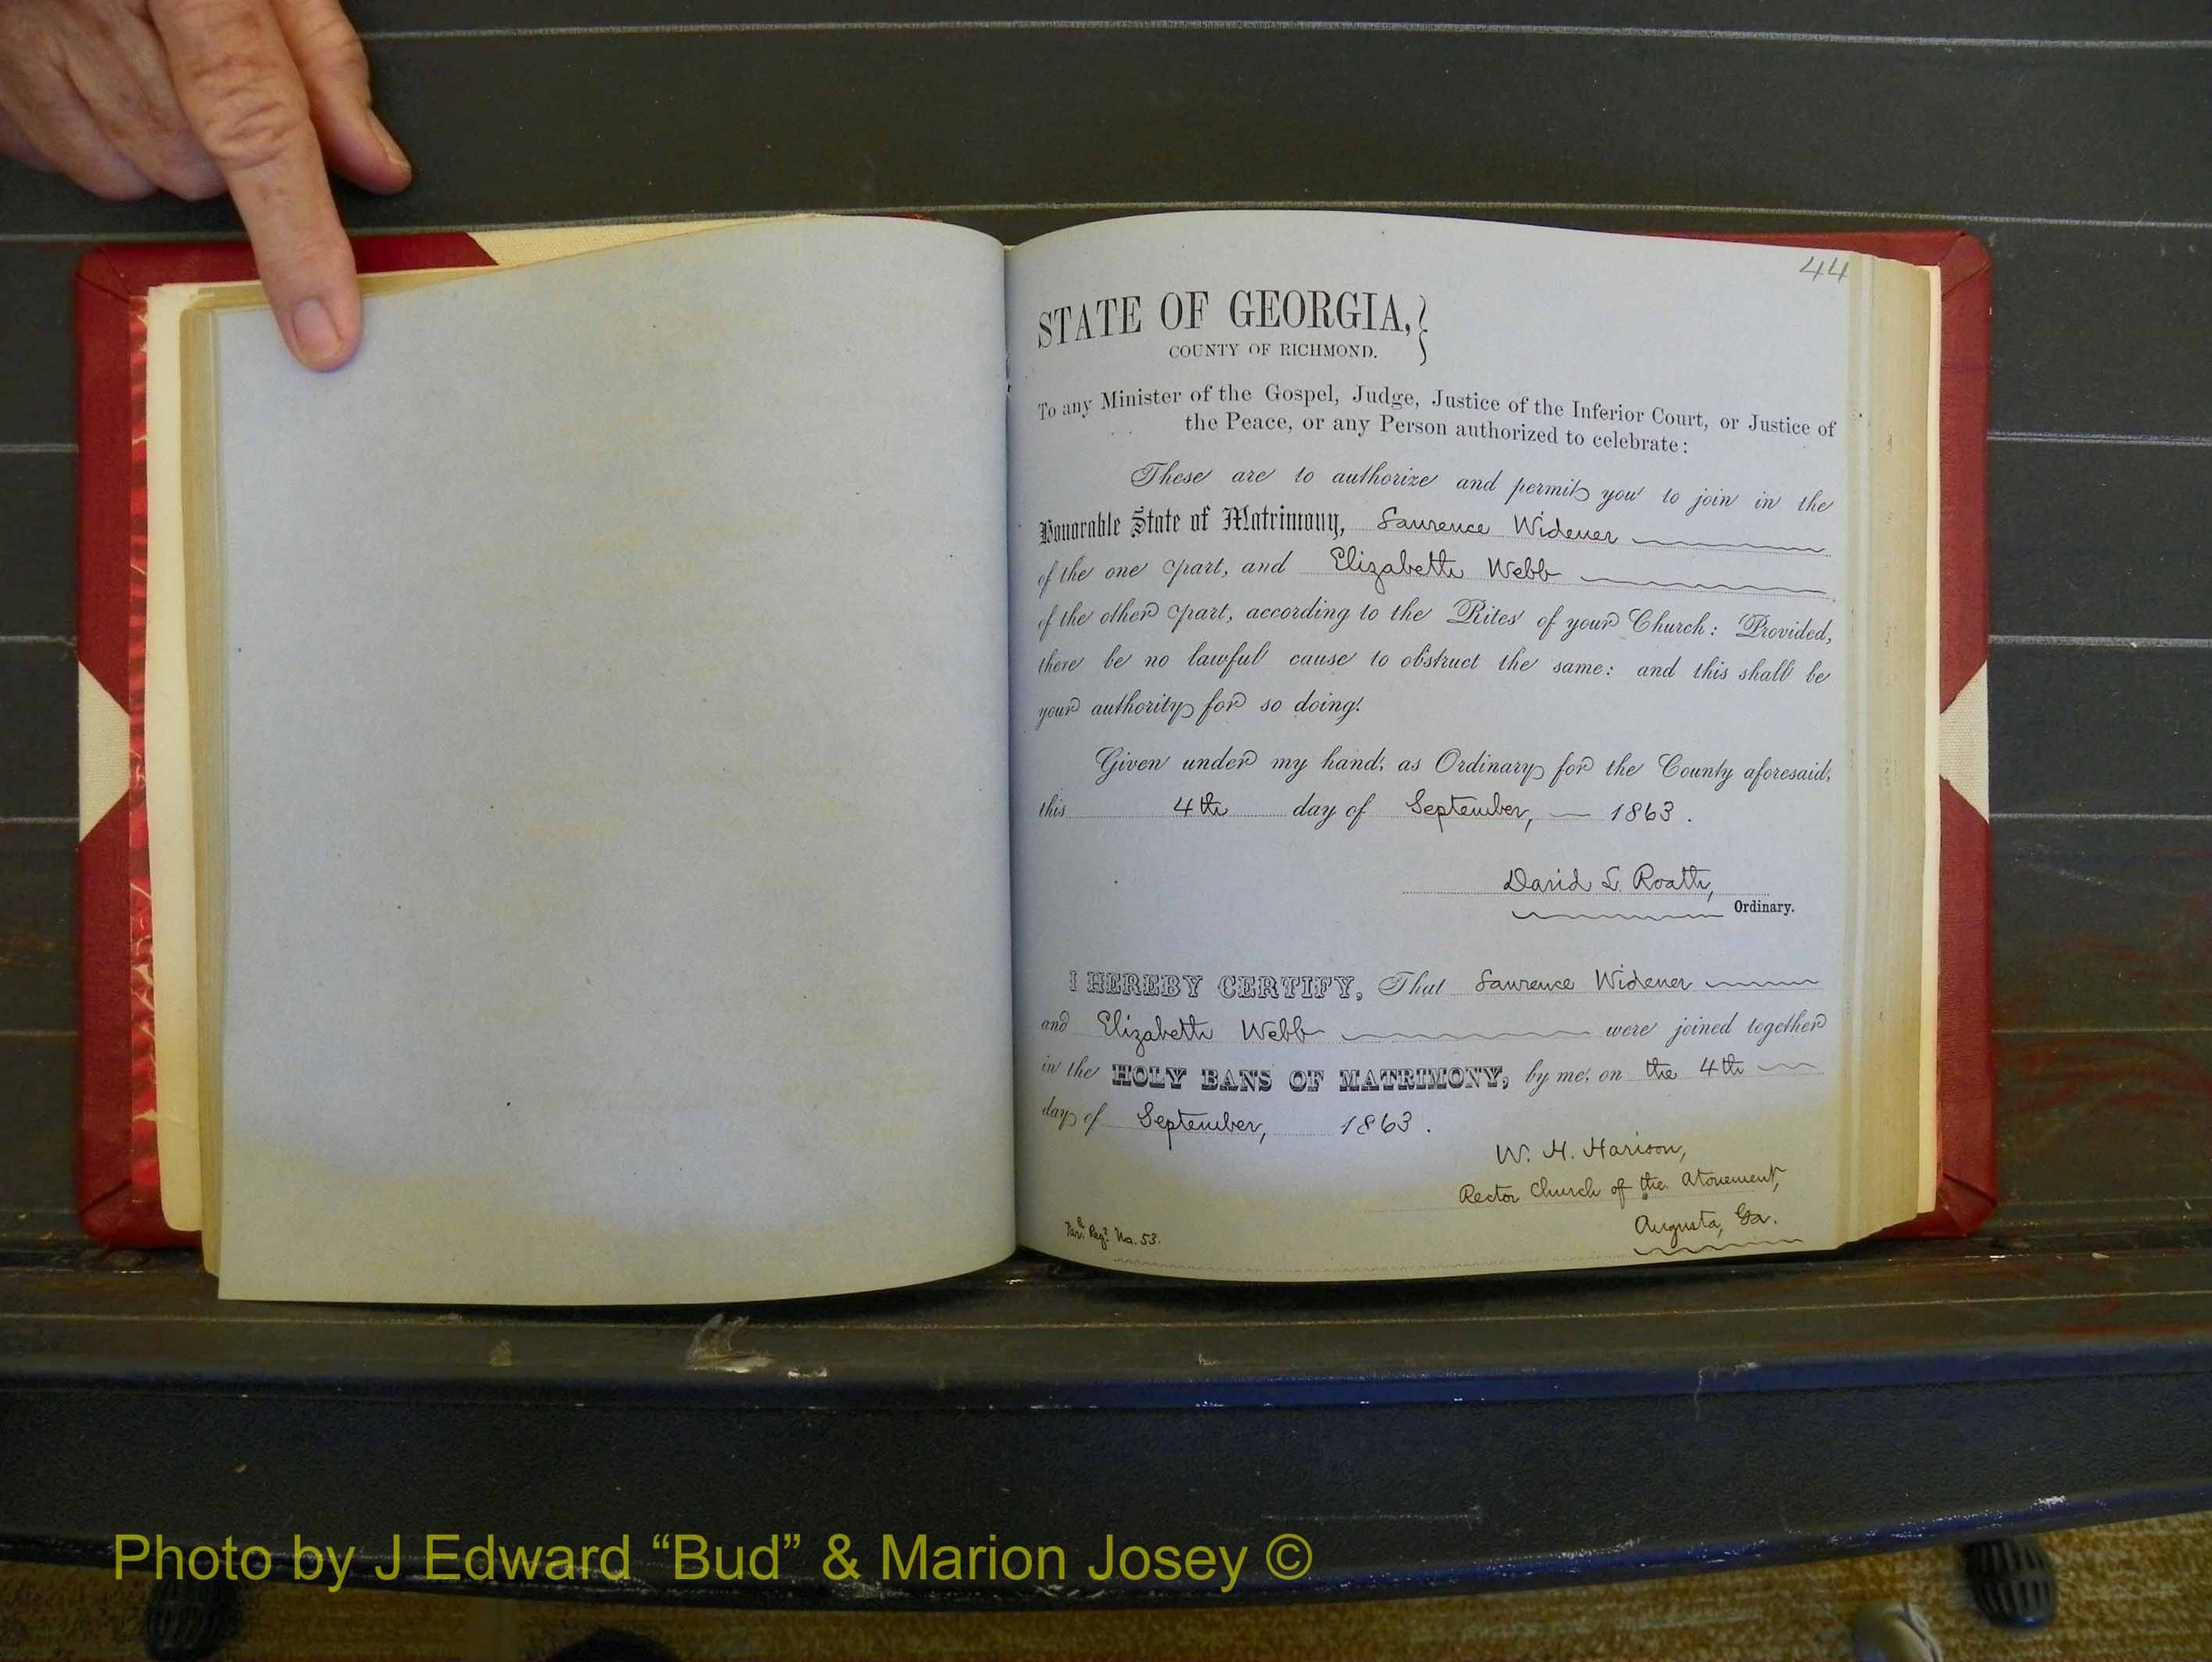 44
STATE OF GEORGIA,}
COUNTY OF RICHMOND.
To any Minister of the Gospel, Judge, Justice of the Inferior Court, or Justice of
the Peace, or any Person authorized to celebrate:
These are to authorize and permit you to join in the
Honorable State of Matrimony, Laurence Widener
of the one part, and Elizabeth Webb
of the other part, according to the Rites of your Church: Provided,
there be no lawful cause to obstruct the same: and this shall be
your authority for so doing.
Given under my hand, as Ordinary for the County aforesaid,
this 4th day of September, — 1863.
David L. Roath,
Ordinary.
I HEREBY CERTIFY, That Laurence Widener
and Elizabeth Webb were joined together
in the HOLY BANS OF MATRIMONY, by me, on the 4th
day of September, 1863.
W. H. Harison,
Rector Church of the Atonement,
Augusta, Ga.
Par. Regr. No. 53.
Photo by J Edward “Bud” & Marion Josey ©